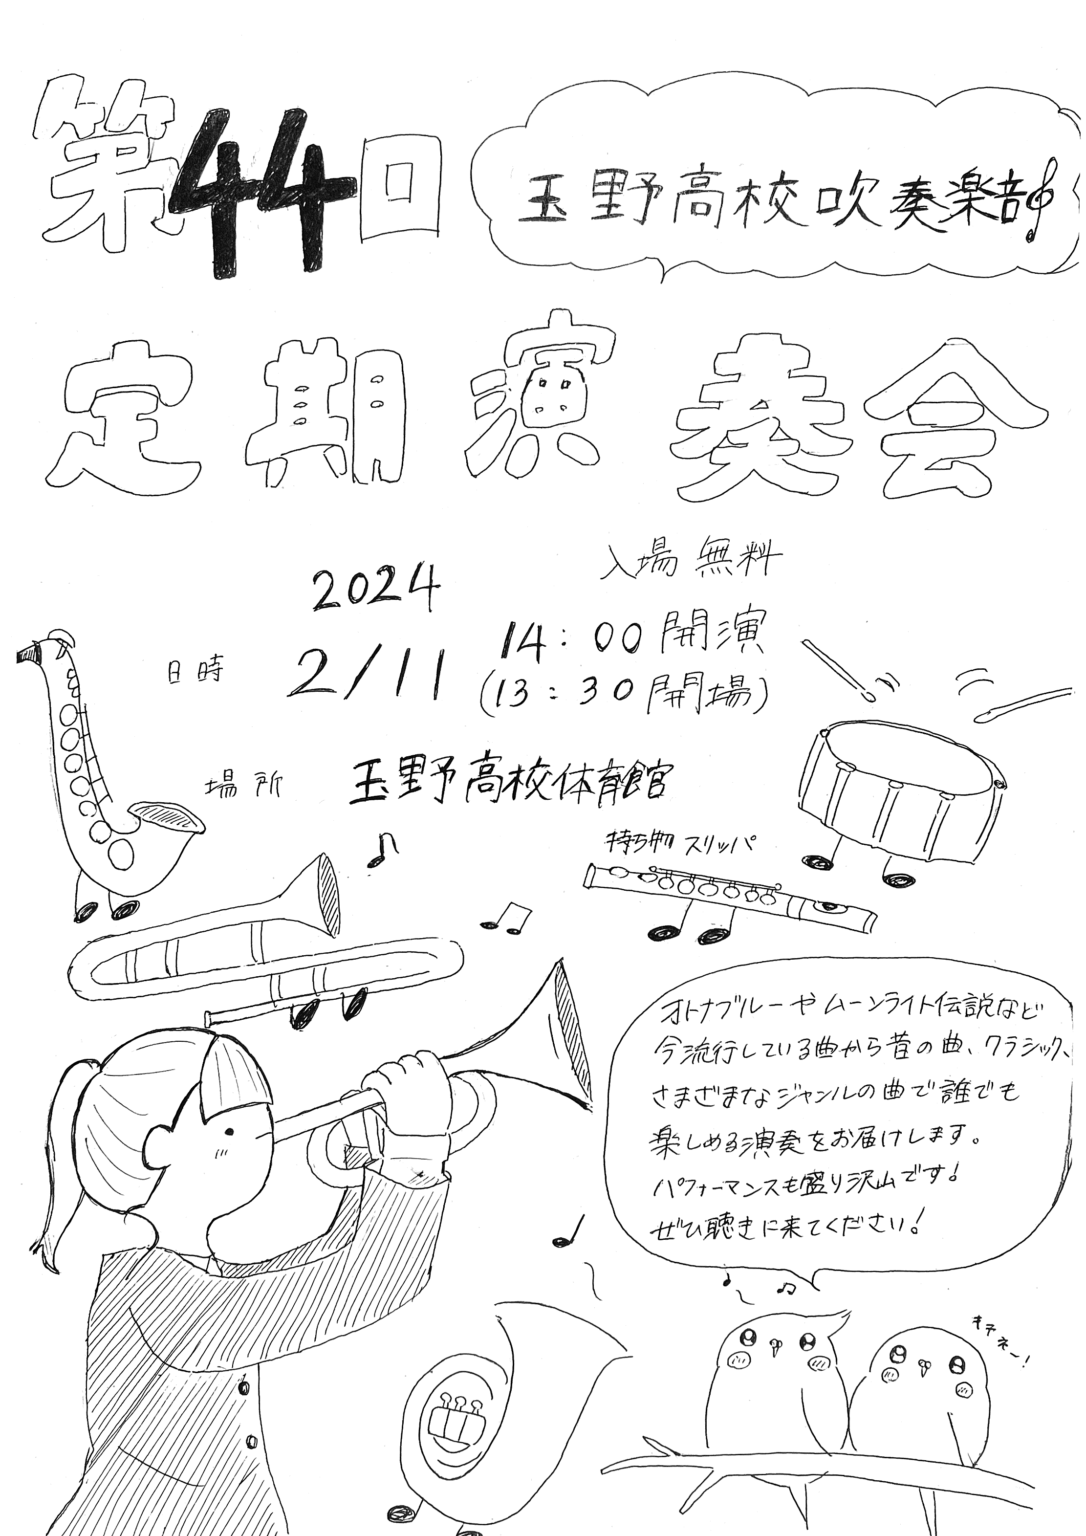 第44回
玉野高校吹奏楽部
定期演奏会
入場無料
2024
日時 2/11 14:00開演
(13:30開場)
場所 玉野高校体育館
持ち物 スリッパ
オトナブルーやムーンライト伝説など
今流行している曲から昔の曲、クラシック、
さまざまなジャンルの曲で誰でも
楽しめる演奏をお届けします。
パフォーマンスも盛り沢山です!
ぜひ聴きに来てください!
キテネー!